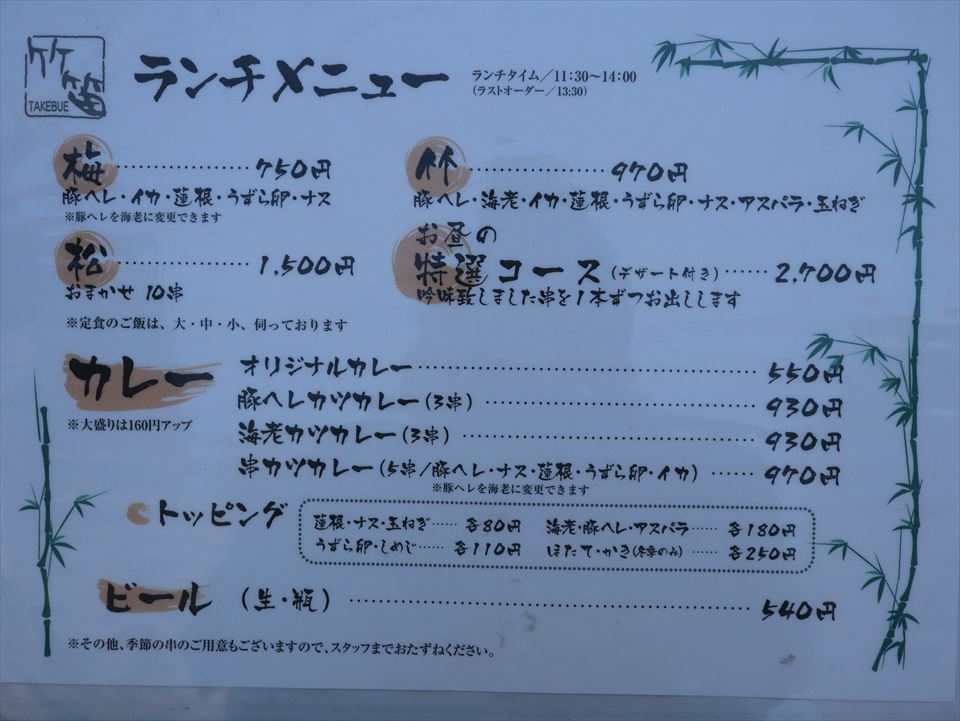 竹笛
TAKEBUE
ランチメニュー
ランチタイム／11:30〜14:00
（ラストオーダー／13:30）
梅 750円
豚ヘレ・イカ・蓮根・うずら卵・ナス
※豚ヘレを海老に変更できます
竹 970円
豚ヘレ・海老・イカ・蓮根・うずら卵・ナス・アスパラ・玉ねぎ
松 1,500円
おまかせ 10串
お昼の
特選コース（デザート付き） 2,700円
吟味致しました串を1本ずつお出しします
※定食のご飯は、大・中・小、伺っております
カレー
※大盛りは160円アップ
オリジナルカレー 550円
豚ヘレカツカレー（3串） 930円
海老カツカレー（3串） 930円
串カツカレー（5串/豚ヘレ・ナス・蓮根・うずら卵・イカ） 970円
※豚ヘレを海老に変更できます
トッピング
蓮根・ナス・玉ねぎ 各80円
海老・豚ヘレ・アスパラ 各180円
うずら卵・しめじ 各110円
ほたて・かき（冬季のみ） 各250円
ビール （生・瓶） 540円
※その他、季節の串のご用意もございますので、スタッフまでおたずねください。